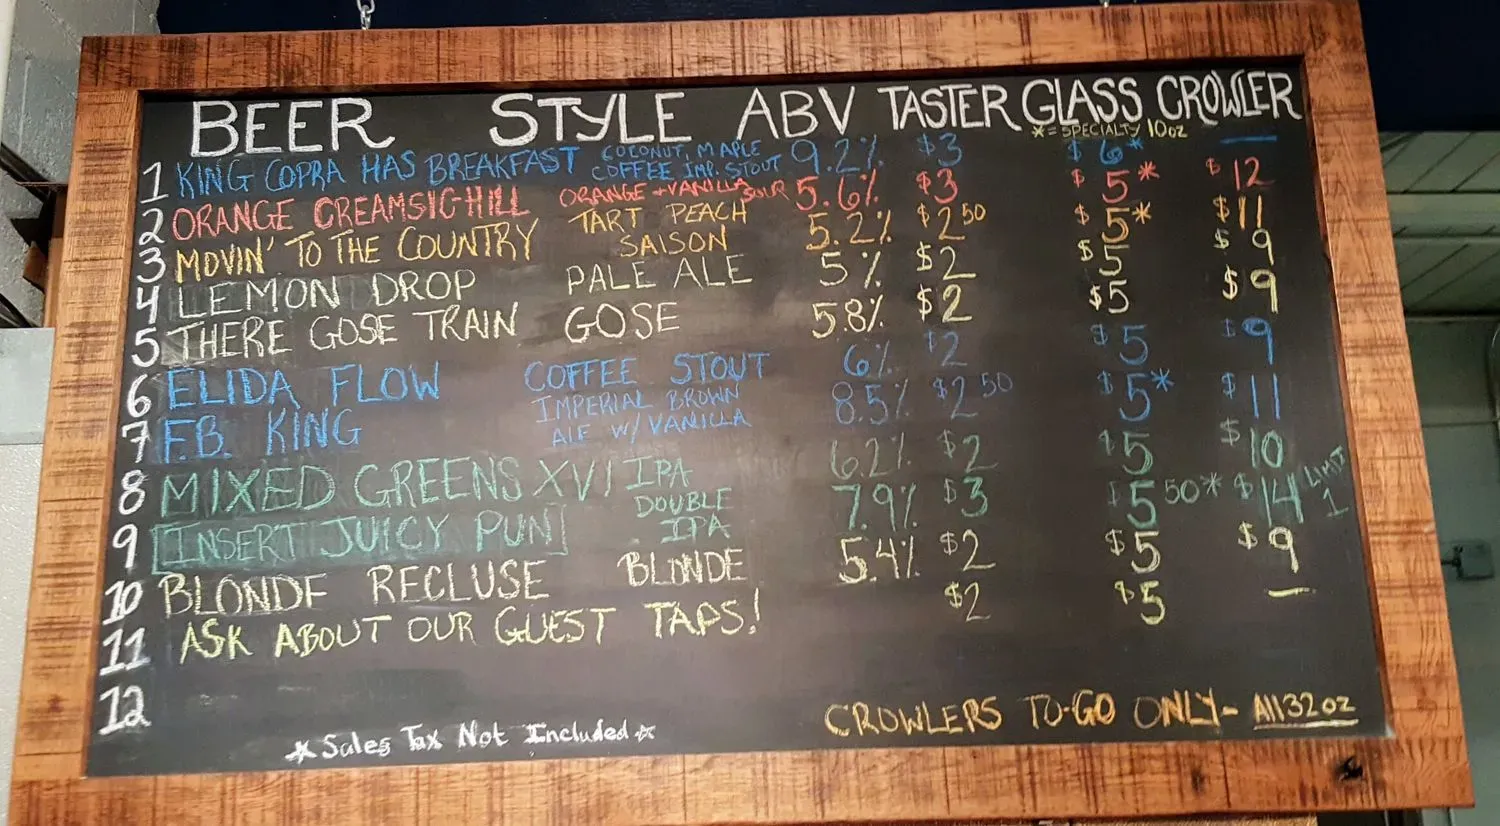 BEER STYLE ABV TASTER GLASS CROWLER
*=SPECIALTY 10oz
1 KING COPRA HAS BREAKFAST COCONUT, MAPLE COFFEE IMP. STOUT 9.2% $3 $6* —
2 ORANGE CREAMSIC-HILL ORANGE + VANILLA SOUR 5.6% $3 $5* $12
3 MOVIN' TO THE COUNTRY TART PEACH SAISON 5.2% $2 50 $5* $11
4 LEMON DROP PALE ALE 5% $2 $5 $9
5 THERE GOSE TRAIN GOSE 5.8% $2 $5 $9
6 ELIDA FLOW COFFEE STOUT 6% $2 $5 $9
7 F.B. KING IMPERIAL BROWN ALE W/ VANILLA 8.5% $2 50 $5* $11
8 MIXED GREENS XVI IPA 6.2% $2 $5 $10
9 [INSERT JUICY PUN] DOUBLE IPA 7.9% $3 $5 50* $14 LIMIT 1
10 BLONDE RECLUSE BLONDE 5.4% $2 $5 $9
11 ASK ABOUT OUR GUEST TAPS! $2 $5 —
12
CROWLERS TO-GO ONLY- All 32oz
*Sales Tax Not Included*